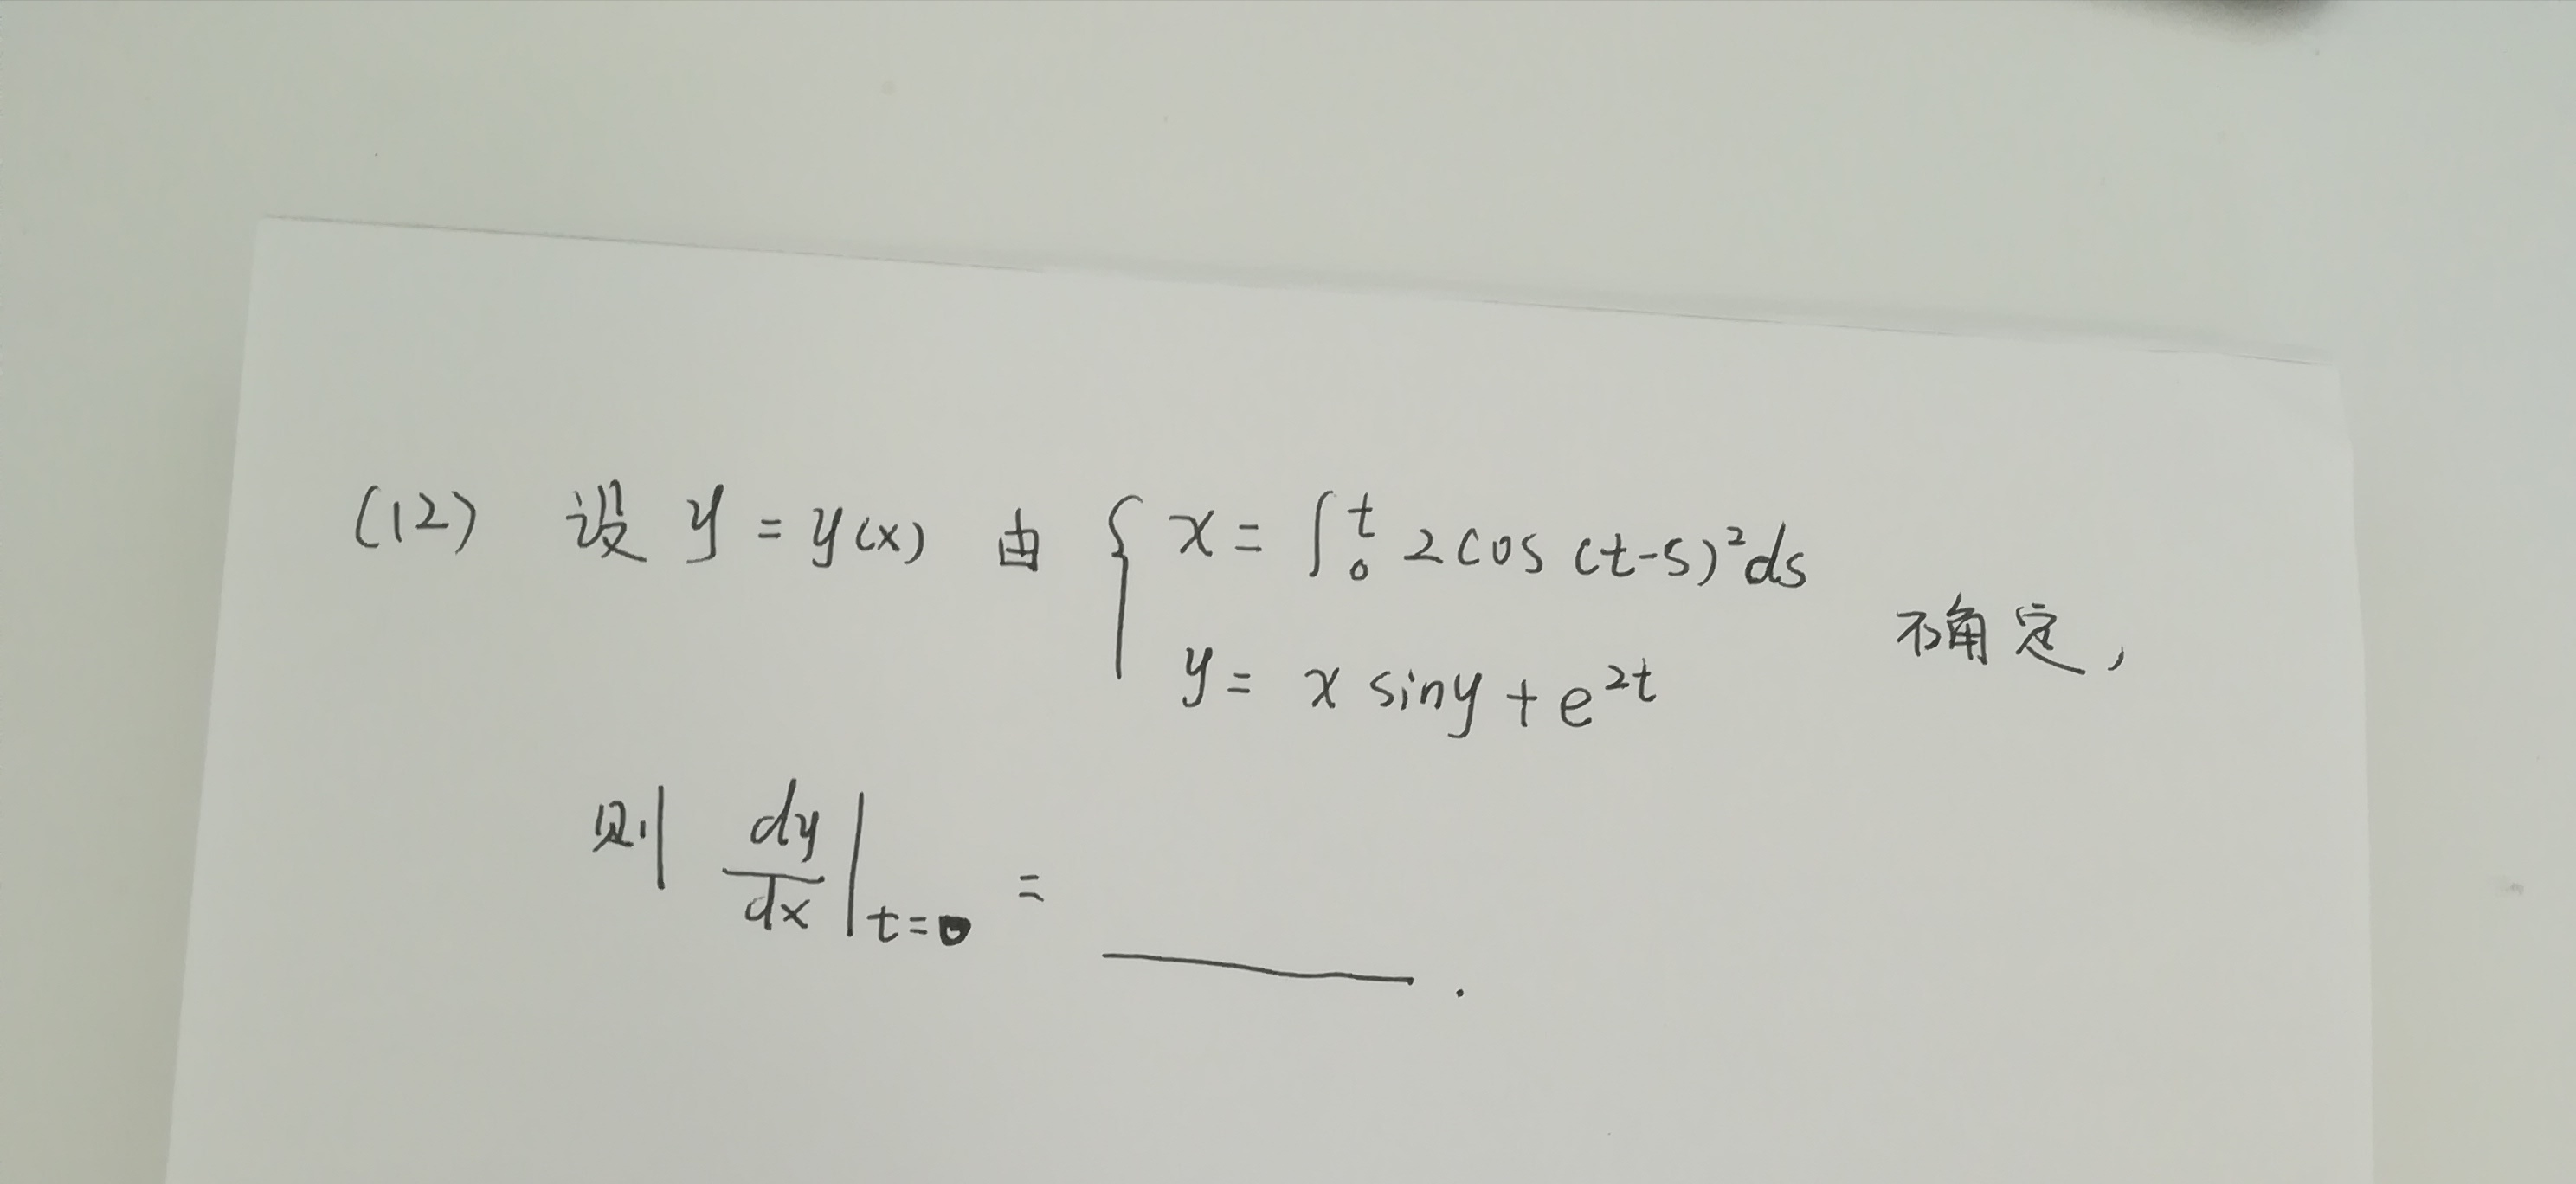 (12) 设 y = y(x) 由 { x = ∫₀ᵗ 2cos(t-s)²ds
y = x siny + e²ᵗ 不角定,
则 dy/dx |t=0 = ______ .